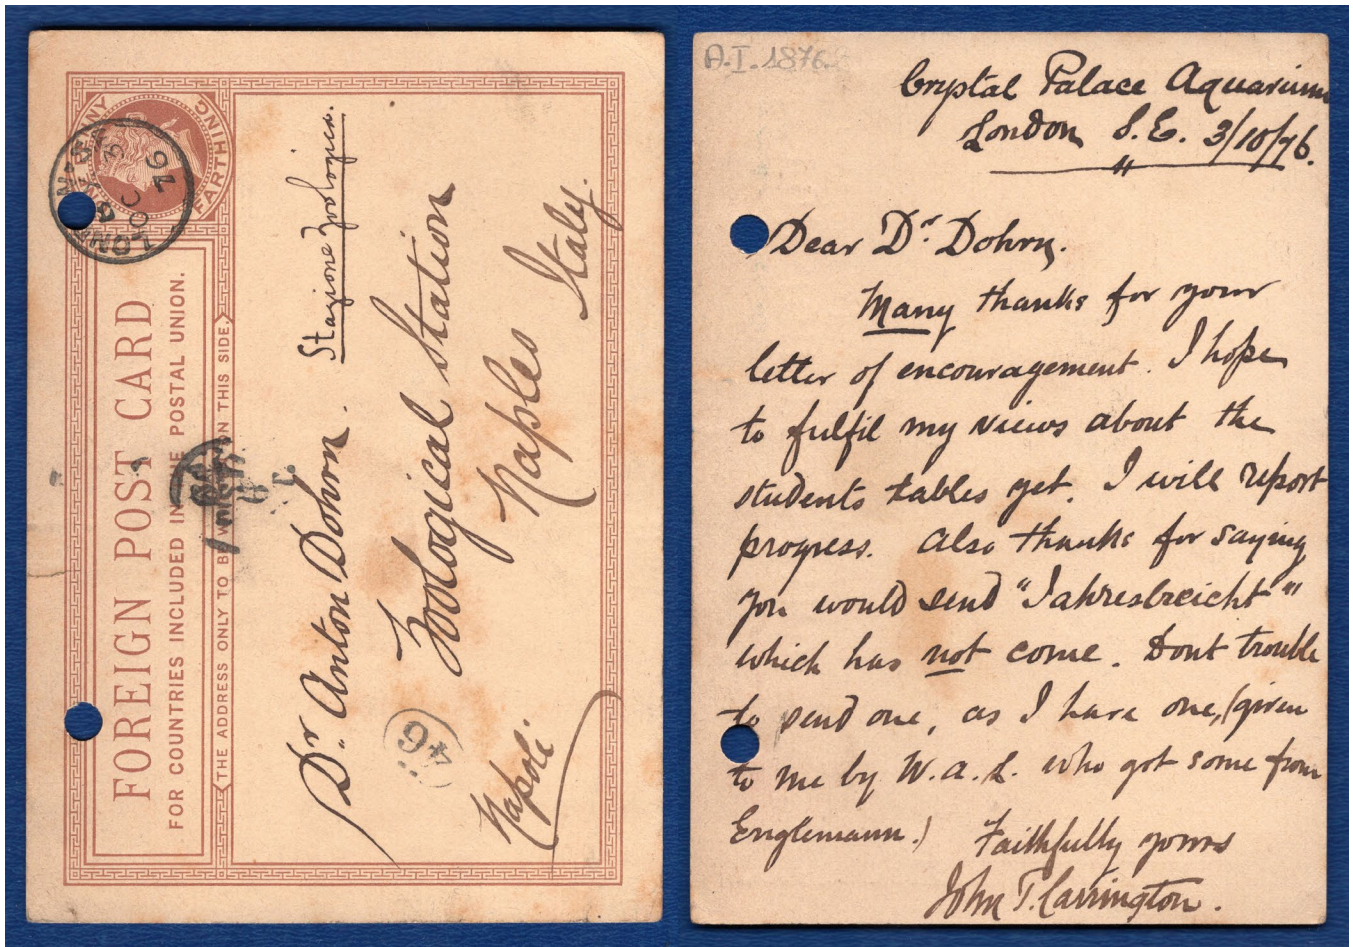 FOREIGN POST CARD
FOR COUNTRIES INCLUDED IN THE POSTAL UNION.
THE ADDRESS ONLY TO BE WRITTEN ON THIS SIDE.
PENNY
FARTHING
LONDON
OC
76
Dr. Anton Dohrn. Stazione Zoologica.
Zoological Station
Naples
Italy.
Napoli.
46
A.I.1876.
Crystal Palace Aquarium
London S.E. 3/10/76.
"
Dear Dr. Dohrn.
Many thanks for your
letter of encouragement. I hope
to fulfil my views about the
students tables yet. I will report
progress. Also thanks for saying
you would send "Jahresbreicht"
which has not come. Dont trouble
to send one, as I have one, (given
to me by W.A.L. who got some from
Englemann.) Faithfully yours
John T. Carrington.